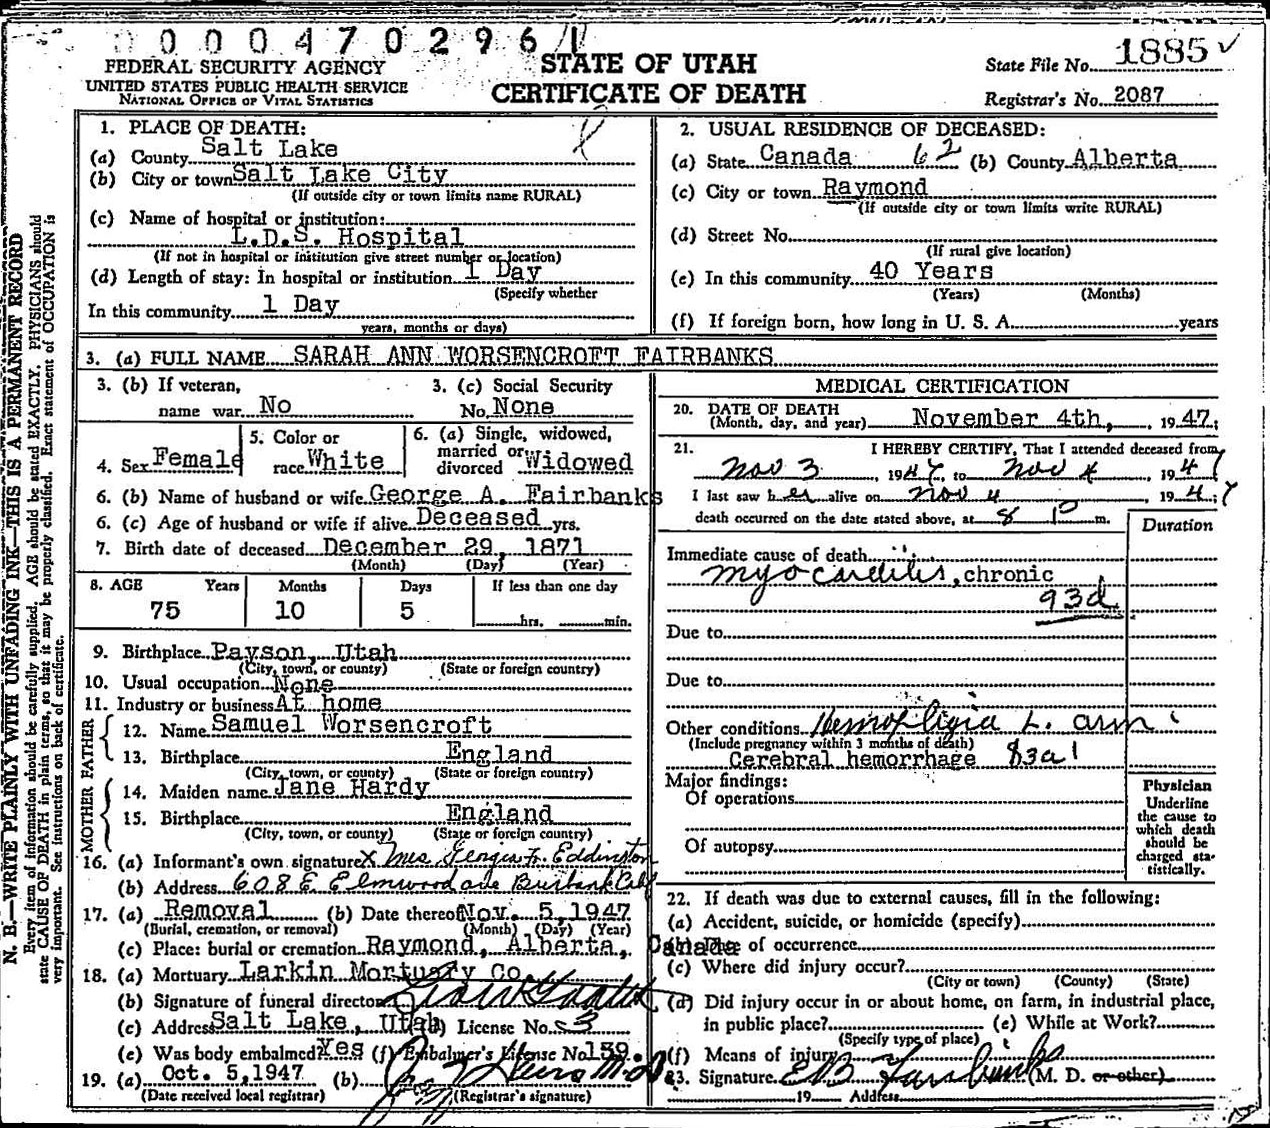 0 0 0 4 7 0 2 9 6
FEDERAL SECURITY AGENCY
UNITED STATES PUBLIC HEALTH SERVICE
NATIONAL OFFICE OF VITAL STATISTICS
STATE OF UTAH
CERTIFICATE OF DEATH
State File No. 1885 ✓
Registrar's No. 2087
N. B.—WRITE PLAINLY WITH UNFADING INK—THIS IS A PERMANENT RECORD
Every item of information should be carefully supplied. AGE should be stated EXACTLY. PHYSICIANS should
state CAUSE OF DEATH in plain terms, so that it may be properly classified. Exact statement of OCCUPATION is
very important. See instructions on back of certificate.
1. PLACE OF DEATH:
(a) County Salt Lake
(b) City or town Salt Lake City
(If outside city or town limits name RURAL)
(c) Name of hospital or institution:
L.D.S. Hospital
(If not in hospital or institution give street number or location)
(d) Length of stay: In hospital or institution 1 Day
(Specify whether
In this community 1 Day
years, months or days)
2. USUAL RESIDENCE OF DECEASED:
(a) State Canada 62 (b) County Alberta
(c) City or town Raymond
(If outside city or town limits write RURAL)
(d) Street No.
(If rural give location)
(e) In this community 40 Years
(Years) (Months)
(f) If foreign born, how long in U. S. A. years
3. (a) FULL NAME SARAH ANN WORSENCROFT FAIRBANKS
3. (b) If veteran, 3. (c) Social Security
name war No No. None
4. Sex Female
5. Color or
race White
6. (a) Single, widowed,
married or
divorced Widowed
6. (b) Name of husband or wife George A. Fairbanks
6. (c) Age of husband or wife if alive Deceased yrs.
7. Birth date of deceased December 29, 1871
(Month) (Day) (Year)
8. AGE Years Months Days If less than one day
75 10 5 hrs. min.
9. Birthplace Payson, Utah
(City, town, or county) (State or foreign country)
10. Usual occupation None
11. Industry or business At home
FATHER
12. Name Samuel Worsencroft
13. Birthplace England
(City, town, or county) (State or foreign country)
MOTHER
14. Maiden name Jane Hardy
15. Birthplace England
(City, town, or county) (State or foreign country)
16. (a) Informant's own signature X Mrs Georgia F. Eddington
(b) Address 608 E Elmwood ave Burbank Calif
17. (a) Removal (b) Date thereof Nov. 5, 1947
(Burial, cremation, or removal) (Month) (Day) (Year)
(c) Place: burial or cremation Raymond, Alberta, Canada
18. (a) Mortuary Larkin Mortuary Co.
(b) Signature of funeral director
(c) Address Salt Lake, Utah (d) License No. 53
(e) Was body embalmed? Yes (f) Embalmer's License No. 159
19. (a) Oct. 5, 1947 (b) M.D.
(Date received local registrar) (Registrar's signature)
MEDICAL CERTIFICATION
20. DATE OF DEATH
(Month, day, and year) November 4th, 1947;
21. I HEREBY CERTIFY, That I attended deceased from
Nov 3, 1947, to Nov 4 1947
I last saw her alive on Nov 4 1947;
death occurred on the date stated above, at 8 10 m.
Duration
Immediate cause of death
myocarditis, chronic
93d
Due to
Due to
Other conditions Hemopligia L. arm
(Include pregnancy within 3 months of death)
Cerebral hemorrhage 83a1
Major findings:
Of operations
Of autopsy
Physician
Underline
the cause to
which death
should be
charged sta-
tistically.
22. If death was due to external causes, fill in the following:
(a) Accident, suicide, or homicide (specify)
(b) Date of occurrence
(c) Where did injury occur?
(City or town) (County) (State)
(d) Did injury occur in or about home, on farm, in industrial place,
in public place? (e) While at Work?
(Specify type of place)
(f) Means of injury
23. Signature E B Fairbanks (M. D. or other)
19 Address